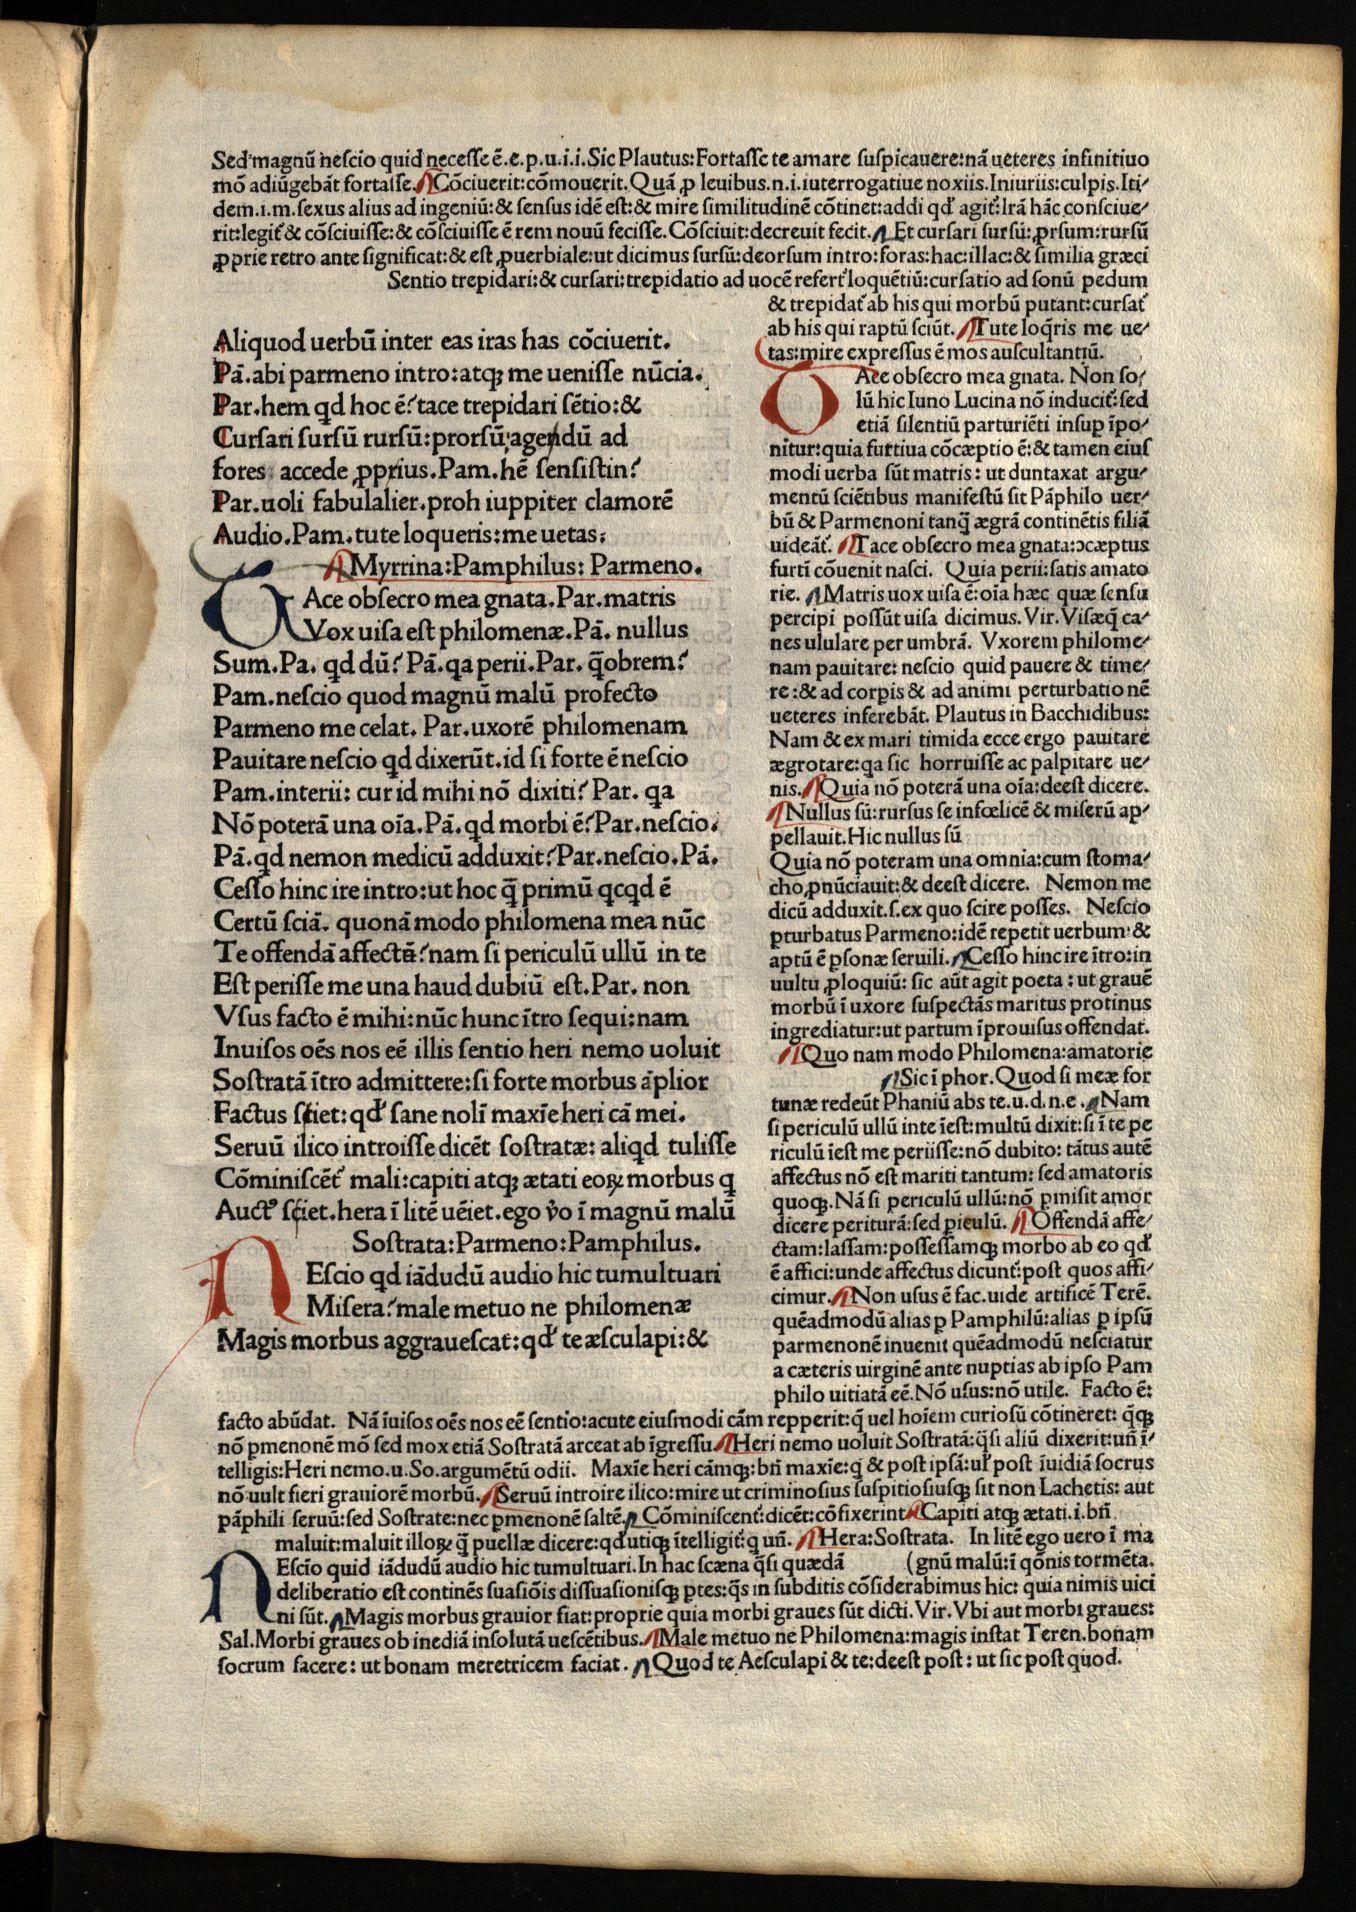 Sed magnū nescio quid necesse ē.e.p.u.i.i.Sic Plautus:Fortasse te amare suspicauere:nā ueteres infinitiuo
mō adiūgebāt fortasse. Cōciuerit:cōmouerit.Quā ꝓ leuibus.n.i.iuterrogatiue noxiis.Iniuriis:culpis.Iti-
dem.i.m.sexus alius ad ingeniū:& sensus idē est:& mire similitudinē cōtinet:addi qđ agit᷑:lrā hāc consciue-
rit:legit᷑ & cōsciuisse:& cōsciuisse ē rem nouū fecisse.Cōsciuit:decreuit fecit. Et cursari sursū:ꝓrsum:rursū
ꝓprie retro ante significat:& est ꝓuerbiale:ut dicimus sursū:deorsum intro:foras:hac:illac:& similia græci
Sentio trepidari:& cursari:trepidatio ad uocē refert᷑ loquētiū:cursatio ad sonū pedum
& trepidat᷑ ab his qui morbū putant:cursat᷑
ab his qui raptū sciūt. Tute loq̄ris me ue-
tas:mire expressus ē mos auscultantiū.
Aliquod uerbū inter eas iras has cōciuerit.
Pā.abi parmeno intro:atqꝫ me uenisse nūcia.
Par.hem qd hoc ē?tace trepidari sētio:&
Cursari sursū rursū:prorsū,agendū ad
fores accede ꝓprius.Pam.hē sensistin?
Par.uoli fabulalier.proh iuppiter clamorē
Audio.Pam.tute loqueris:me uetas:
Myrrina:Pamphilus: Parmeno.
TAce obsecro mea gnata.Par.matris
Vox uisa est philomenæ.Pā. nullus
Sum.Pa. qd dū? Pā.qa perii.Par. q̄obrem?
Pam.nescio quod magnū malū profecto
Parmeno me celat. Par.uxorē philomenam
Pauitare nescio qd dixerūt.id si forte ē nescio
Pam.interii: cur id mihi nō dixiti? Par. qa
Nō poterā una oīa.Pā.qd morbi ē?Par.nescio.
Pā.qd nemon medicū adduxit?Par.nescio.Pā.
Cesso hinc ire intro:ut hoc q̄ primū qcqd ē
Certū sciā. quonā modo philomena mea nūc
Te offendā affectā?nam si periculū ullū in te
Est perisse me una haud dubiū est.Par. non
Vsus facto ē mihi:nūc hunc ītro sequi:nam
Inuisos oēs nos eē illis sentio heri nemo uoluit
Sostratā ītro admittere:si forte morbus āplior
Factus sciet: qđ sane nolī maxīe heri cā mei.
Seruū ilico introisse dicēt sostratæ: aliqd tulisse
Cōminiscēt᷑ mali:capiti atqꝫ ætati eoꝝ morbus q
Auctꝰ sciet.hera ī litē uēiet.ego v̊o ī magnū malū
Sostrata:Parmeno:Pamphilus.
NEscio qd iādudū audio hic tumultuari
Misera?male metuo ne philomenæ
Magis morbus aggrauescat:qđ te æsculapi:&
TAce obsecro mea gnata. Non so-
lū hic Iuno Lucina nō inducit᷑:sed
etiā silentiū parturiēti insuꝑ īpo-
nitur:quia furtiua cōcæptio ē:& tamen eius
modi uerba sūt matris: ut duntaxat argu-
mentū sciētibus manifestū sit Pāphilo uer-
bū & Parmenoni tanq̄ ægrā continētis filiā
uideāt᷑. Tace obsecro mea gnata:ɔcæptus
furtī cōuenit nasci. Quia perii:satis amato
rie. Matris uox uisa ē:oīa hæc quæ sensu
percipi possūt uisa dicimus. Vir. Visæq̄ ca-
nes ululare per umbrā. Vxorem philome-
nam pauitare: nescio quid pauere & time-
re:& ad corꝑis & ad animi perturbationē
ueteres inferebāt. Plautus in Bacchidibus:
Nam & ex mari timida ecce ergo pauitare
ægrotare:qa sic horruisse ac palpitare ue-
nis. Quia nō poterā una oīa:deest dicere.
Nullus sū:rursus se infœlicē & miserū ap-
pellauit.Hic nullus sū
Quia nō poteram una omnia:cum stoma-
cho ꝓnūciauit:& deest dicere. Nemon me
dicū adduxit.s.ex quo scire posses. Nescio
ꝑturbatus Parmeno:idē repetit uerbum &
aptū ē ꝑsonæ seruili. Cesso hinc ire ītro:in
uultu ꝓloquiū: sic aūt agit poeta: ut grauē
morbū ī uxore suspectās maritus protinus
ingrediatur:ut partum īprouisus offendat.
Quo nam modo Philomena:amatorie
Sic ī phor.Quod si meæ for
tunæ redeūt Phaniū abs te.u.d.n.e. Nam
si periculū ullū inte īest:multū dixit:si ī te pe
riculū īest me periisse:nō dubito: tātus autē
affectus nō est mariti tantum: sed amatoris
quoqꝫ.Nā si periculū ullū:nō ꝑmisit amor
dicere periturā:sed ꝑiculū. Offendā affe-
ctam:lassam:possessamqꝫ morbo ab eo qđ
ē affici:unde affectus dicunt᷑:post quos affi-
cimur. Non usus ē fac.uide artificē Terē.
quēadmodū alias ꝑ Pamphilū:alias ꝑ ipsū
parmenonē inuenit quēadmodū nesciatur
a cæteris uirginē ante nuptias ab ipso Pam
philo uitiatā eē.Nō usus:nō utile. Facto ē:
facto abūdat. Nā īuisos oēs nos eē sentio:acute eiusmodi cām repperit:q̄ uel hoīem curiosū cōtineret: q̄qꝫ
nō ꝑmenonē mō sed mox etiā Sostratā arceat ab īgressu. Heri nemo uoluit Sostratā:q̄si aliū dixerit:uñ ī-
telligis:Heri nemo.u.So.argumētū odii. Maxīe heri cāmqꝫ:bñ maxīe:q & post ipsā:uł post īuidiā socrus
nō uult fieri grauiorē morbū. Seruū introire ilico:mire ut criminosius suspitiosiusqꝫ sit non Lachetis: aut
pāphili seruū:sed Sostrate:nec ꝑmenonē saltē. Cōminiscent᷑:dicēt:cōfixerint Capiti atqꝫ ætati.i.bñ
maluit:maluit illoꝝ q̄ puellæ dicere:qđ utiqꝫ ītelligit᷑:q uñ. Hera:Sostrata. In litē ego uero ī ma
NEscīo quid iādudū audio hic tumultuari.In hac scæna q̄si quædā (gnū malū:ī qōnis tormēta.
deliberatio est continēs suasiōis dissuasionisqꝫ ꝑtes:q̄s in subditis cōsiderabimus hic: quia nimis uici
ni sūt. Magis morbus grauior fiat:proprie quia morbi graues sūt dicti.Vir.Vbi aut morbi graues:
Sal.Morbi graues ob inediā insolutā uescētibus. Male metuo ne Philomena:magis instat Teren.bonam
socrum facere: ut bonam meretricem faciat. Quod te Aesculapi & te:deest post: ut sic post quod.